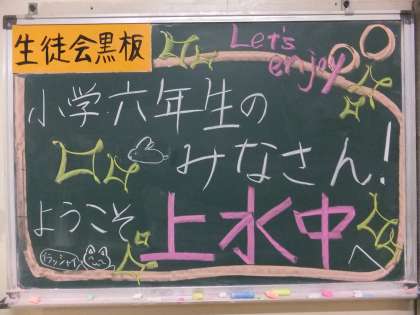 生徒会黒板
Let's
enjoy
小学六年生の
みなさん!
ようこそ
上水中へ
イラッシャイ